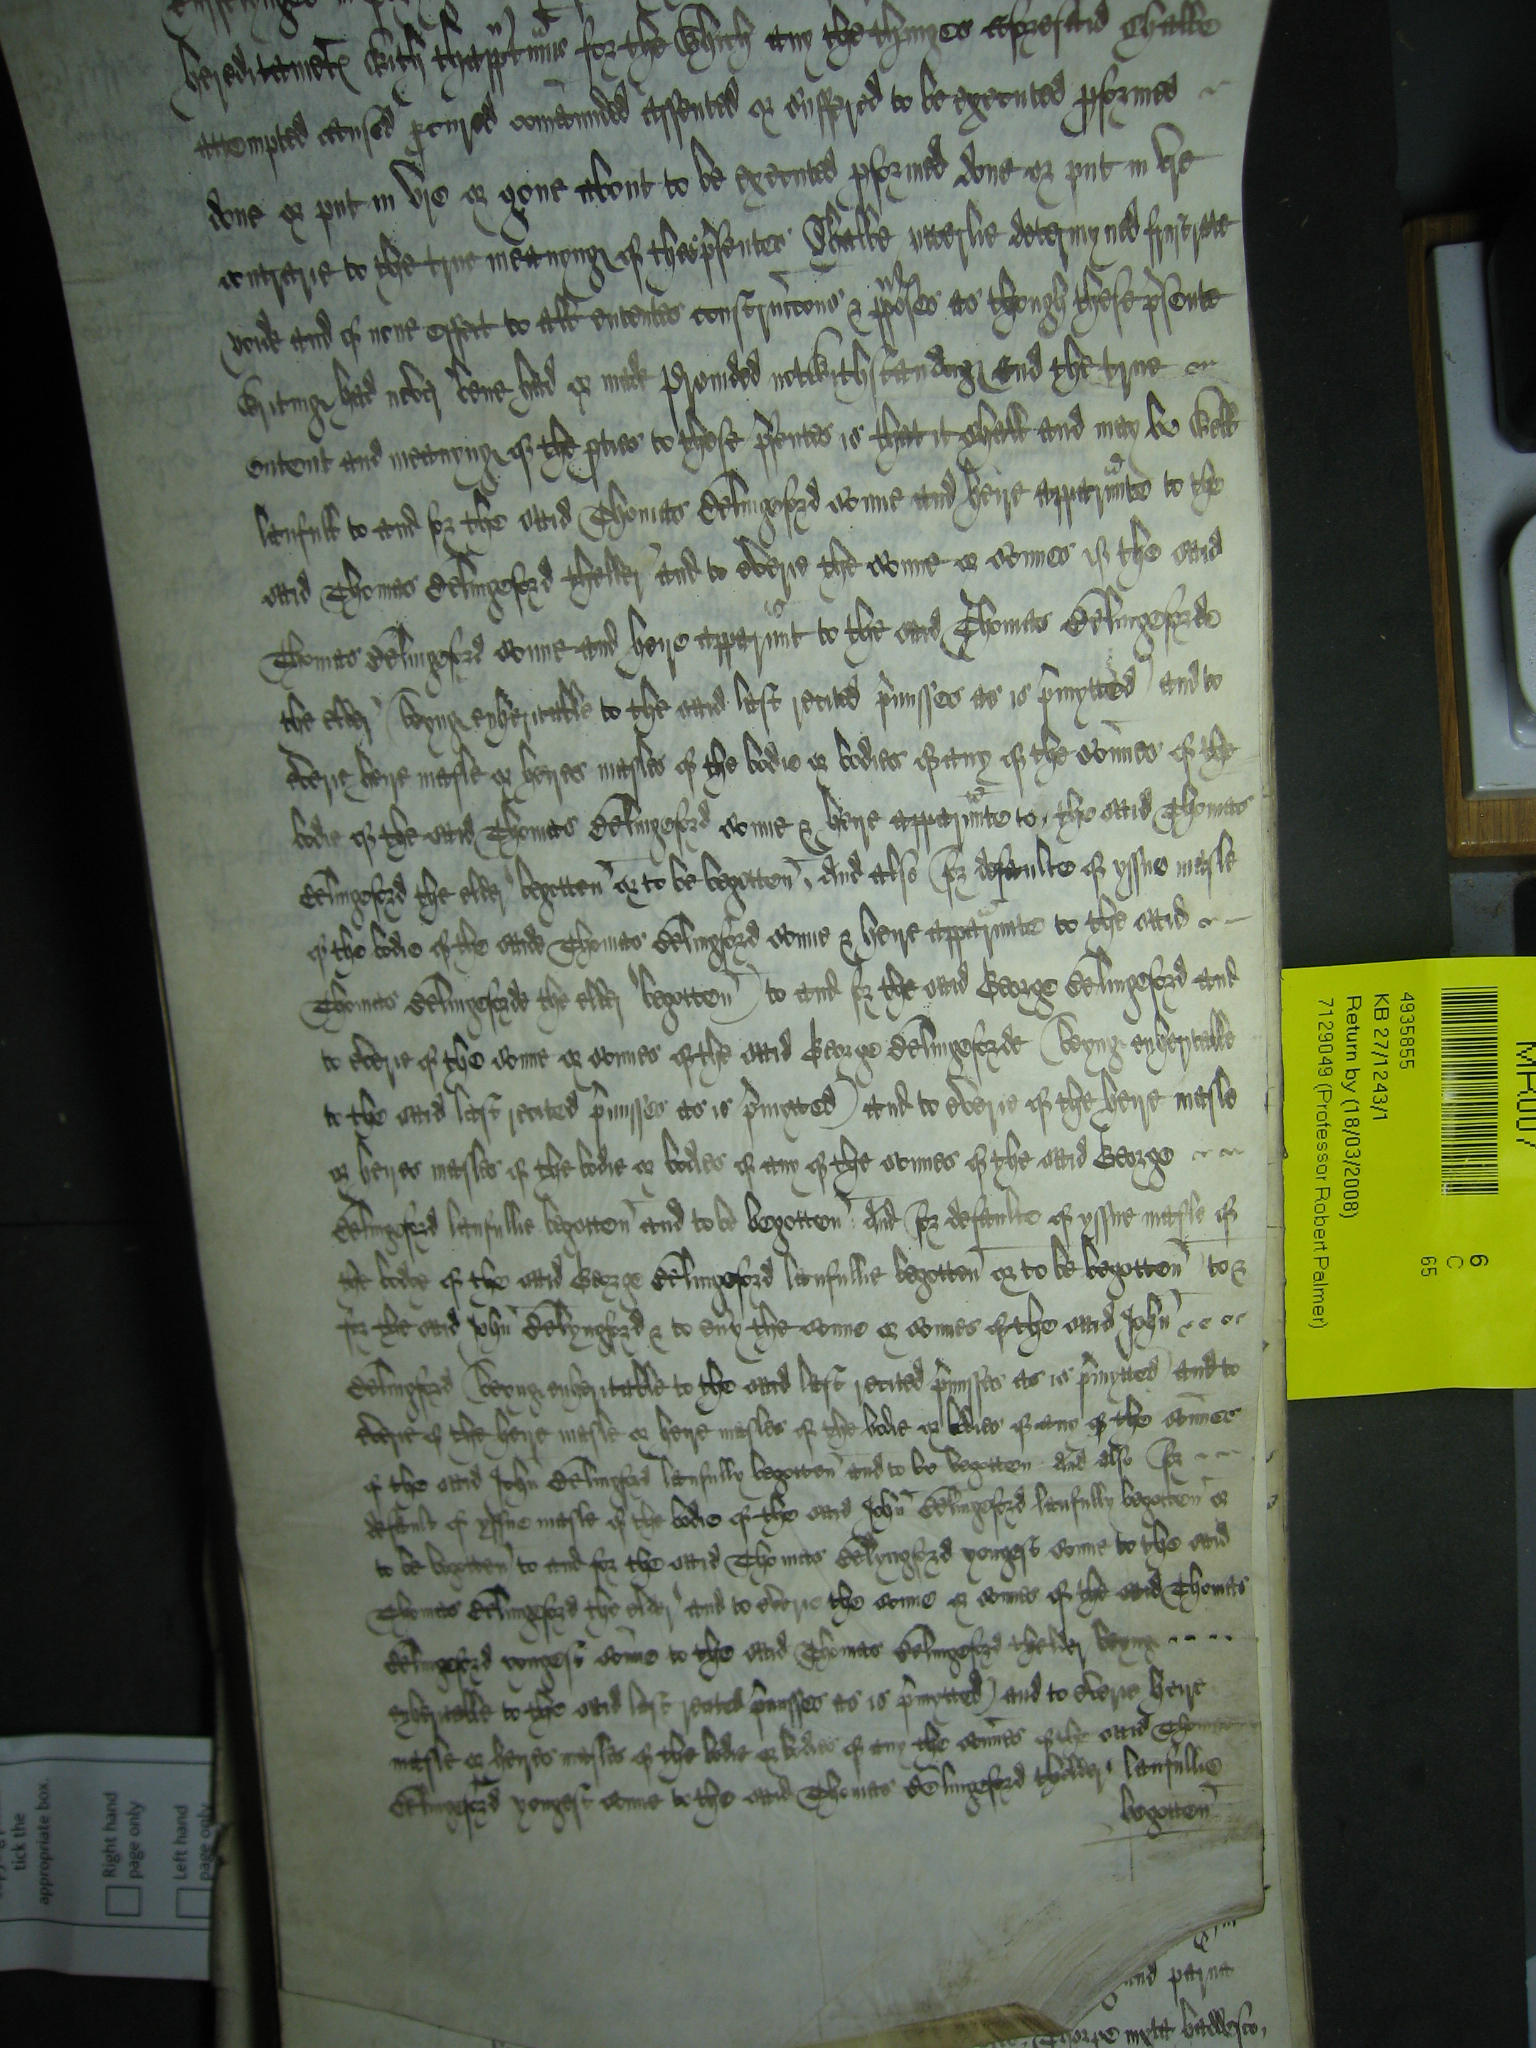 hereditament with thapp'tnnᵃnc for the which any the thinges aforesaid Shalbe
attempted caused p'cured comaunded assented or suffered to be executed p'formed
done or put in vre or gone about to be executed p'formed done or put in vre
contrarie to the true meanyng of theis p'sentes Shalbe utterlie determyned frustrate
voide and of none effect to all ententes constructions & p'poses as though these p'sente
writing had neu' bene had or made Provided notwithstanding and the true
entent and meanyng of the p'ties to these p'sentes is that it shall and may be well
laufull to and for the said Thomas Elingeford sonne and heire appar'nte to the
said Thomas Elingeford thelder and to everie the sonne or sonnes of the said
Thomas Elingeford sonne and heire appar'nt to the said Thomas Elingeforde
the elder (beyng enheritable to the said last recited p'misses as is p'mytted) and to
everie heire masle or heires masles of the bodie or bodies of any of the sonnes of the
bodie of the said Thomas Elingeford sonne & heire appar'nte to the said Thomas
Elingeford the elder begotten or to be begotten, And also for defaulte of yssue masle
of the bodie of the saide Thomas Elingford sonne & heire appar'nte to the said
Thomas Elingeforde the elder begotten) to and for the said George Elingeford and
to everie of the sonne or sonnes of the said George Elingeforde (beyng enheritable
to the said last recited p'misses as is p'mytted) and to everie of the heire masle
or heires masles of the bodie or bodies of any of the sonnes of the said George
Elingeford laufullie begotten and to be begotten And for defaulte of yssue masle of
the bodie of the said George Elingeford laufullie begotten or to be begotten to &
for the said John Elyngford & to eu'y the sonne or sonnes of the said John
Elingford (beyng enheritable to the said last recited p'misses as is p'mytted) and to
everie of the heire masle or heire masles of the bodie or bodies of any of the sonnes
of the said John Elingford laufully begotten and to be begotten And also for
default of yssue masle of the bodie of the said John Elingeford laufully begotten or
to be begotten to and for the said Thomas Elyngford yongest sonne to the said
Thomas Elingeford the elder and to everie the sonne or sonnes of the said Thomas
Elingeford yongest sonne to the said Thomas Elingeford thelder beyng
enheritable to the said last recited p'misses as is p'mytted) and to everie heire
masle or heires masles of the bodie or bodies of any the sonnes of the said Thomas
Elingeford yongest sonne to the said Thomas Elingeford thelder laufullie
begotten
and
4935855
KB 27/1243/1
Return by (18/03/2008)
7129049 (Professor Robert Palmer)
6
C
65
tick the
appropriate box.
Right hand
page only
Left hand
page only